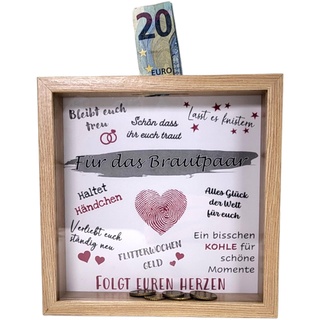 20
EURO
Bleibt euch
treu
Schön dass
ihr euch traut
Lasst es knistern
Für das Brautpaar
Haltet
Händchen
Alles Glück
der Welt
für euch
Verliebt euch
ständig neu
FLITTERWOCHEN
GELD
Ein bisschen
KOHLE für
schöne
Momente
FOLGT EUREN HERZEN